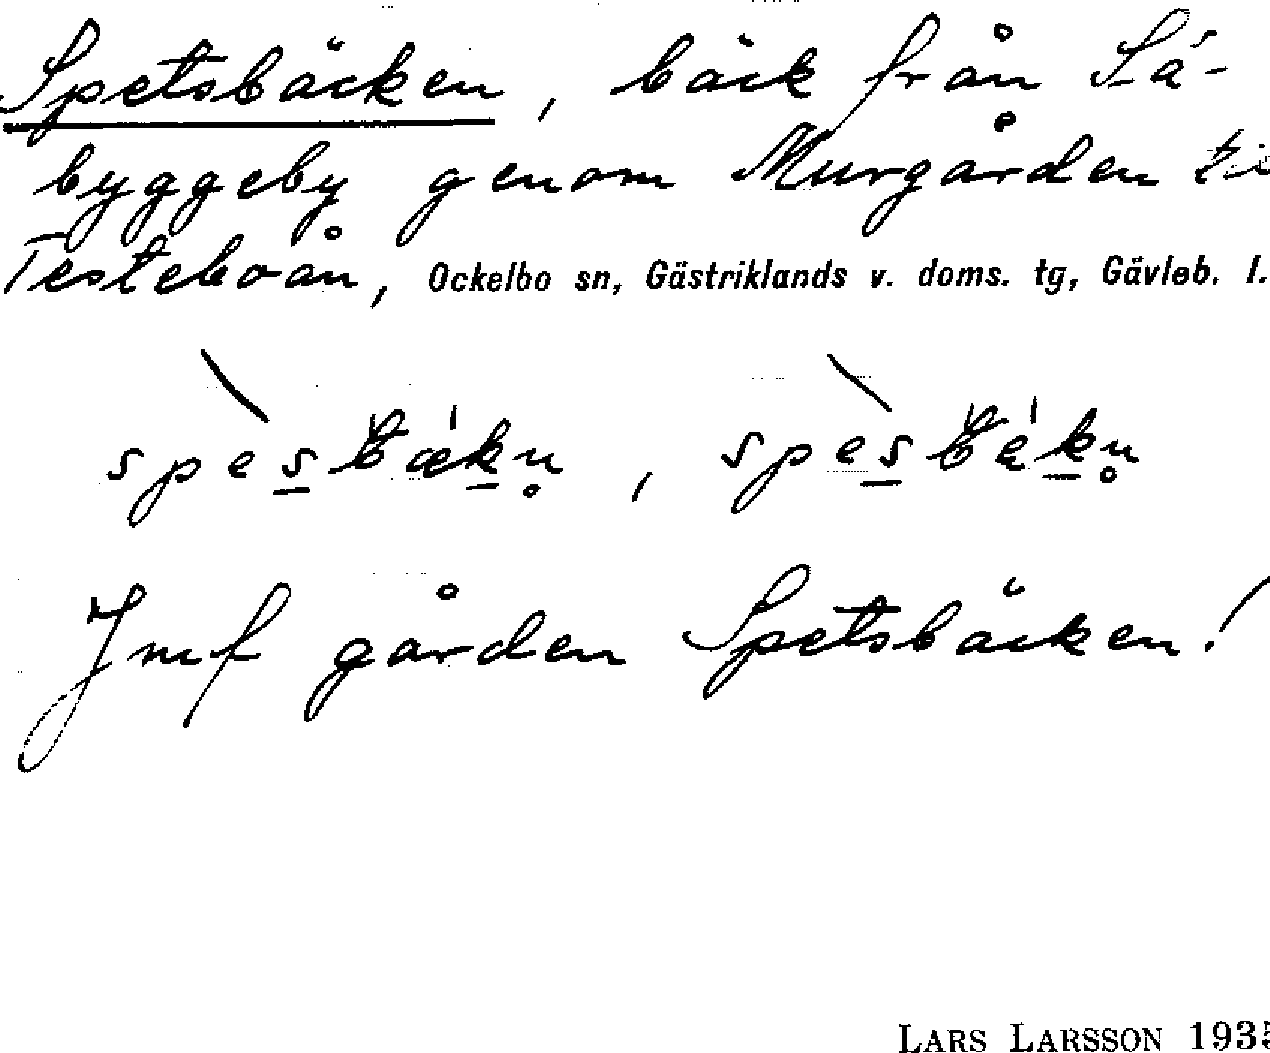 Spetsbäcken, bäck från Så-
byggeby genom Murgården
Testeboån, Ockelbo sn, Gästriklands v. doms. tg, Gävleb. l.
Jmf gården Spetsbäcken!
LARS LARSSON 193